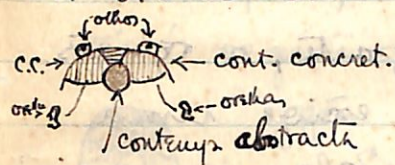 olhos
c.c. cont. concret.
orelha orelhas
contemp. abstracta